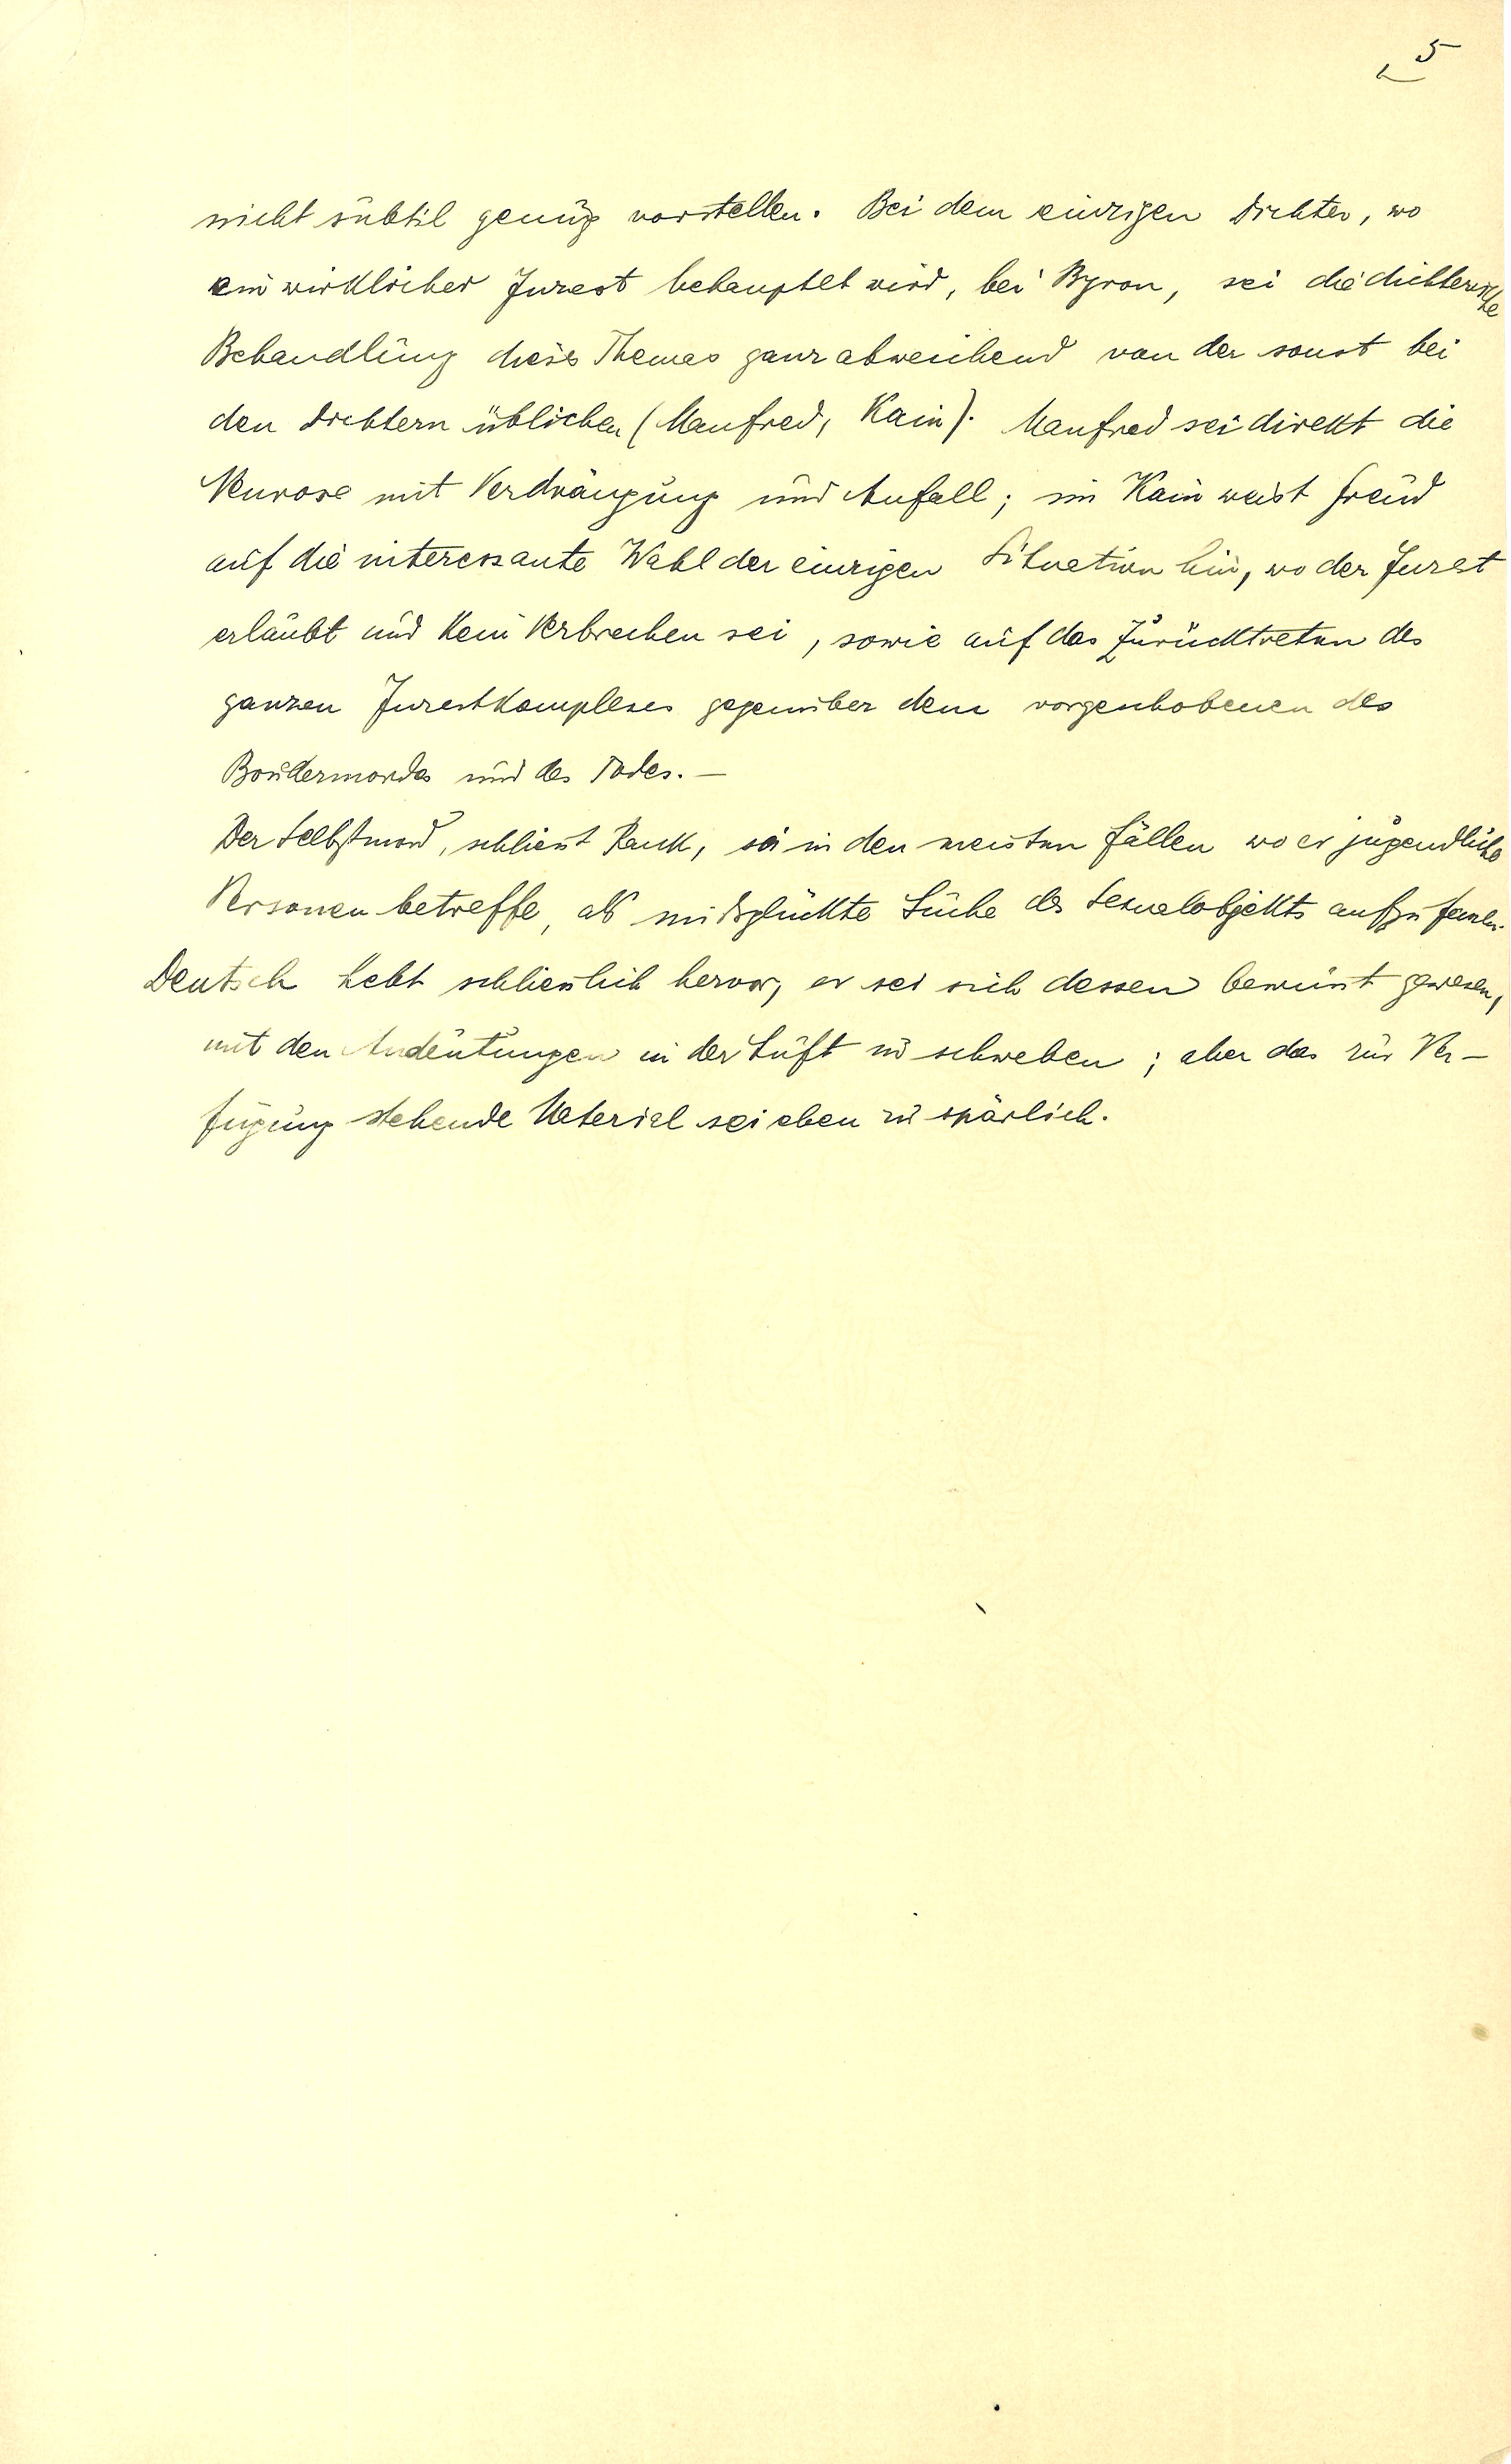 5
nicht subtil genug vorstellen. Bei dem einzigen Dichter, wo
ein wirklicher Inzest behauptet wird, bei Byron, sei die dichterische
Behandlung dieses Themas ganz abweichend von der sonst bei
den Dichtern üblichen (Manfred, Kain). Manfred sei direkt die
Neurose mit Verdrängung und Anfall; im Kain weist Freud
auf die interessante Wahl der einzigen Situation hin, wo der Inzest
erlaubt und kein Verbrechen sei, sowie auf das Zurücktreten des
ganzen Inzestkomplexes gegenüber dem vorgeschobenen des
Brudermordes und des Todes. —
Der Selbstmord, schliesst Rank, sei in den meisten Fällen wo er jugendliche
Personen betreffe, als missglückte Suche des Sexualobjekts aufzufassen.
Deutsch hebt schliesslich hervor, er sei sich dessen bewusst gewesen,
mit den Andeutungen in der Luft zu schweben; aber das zur Ver-
fügung stehende Material sei eben zu spärlich.